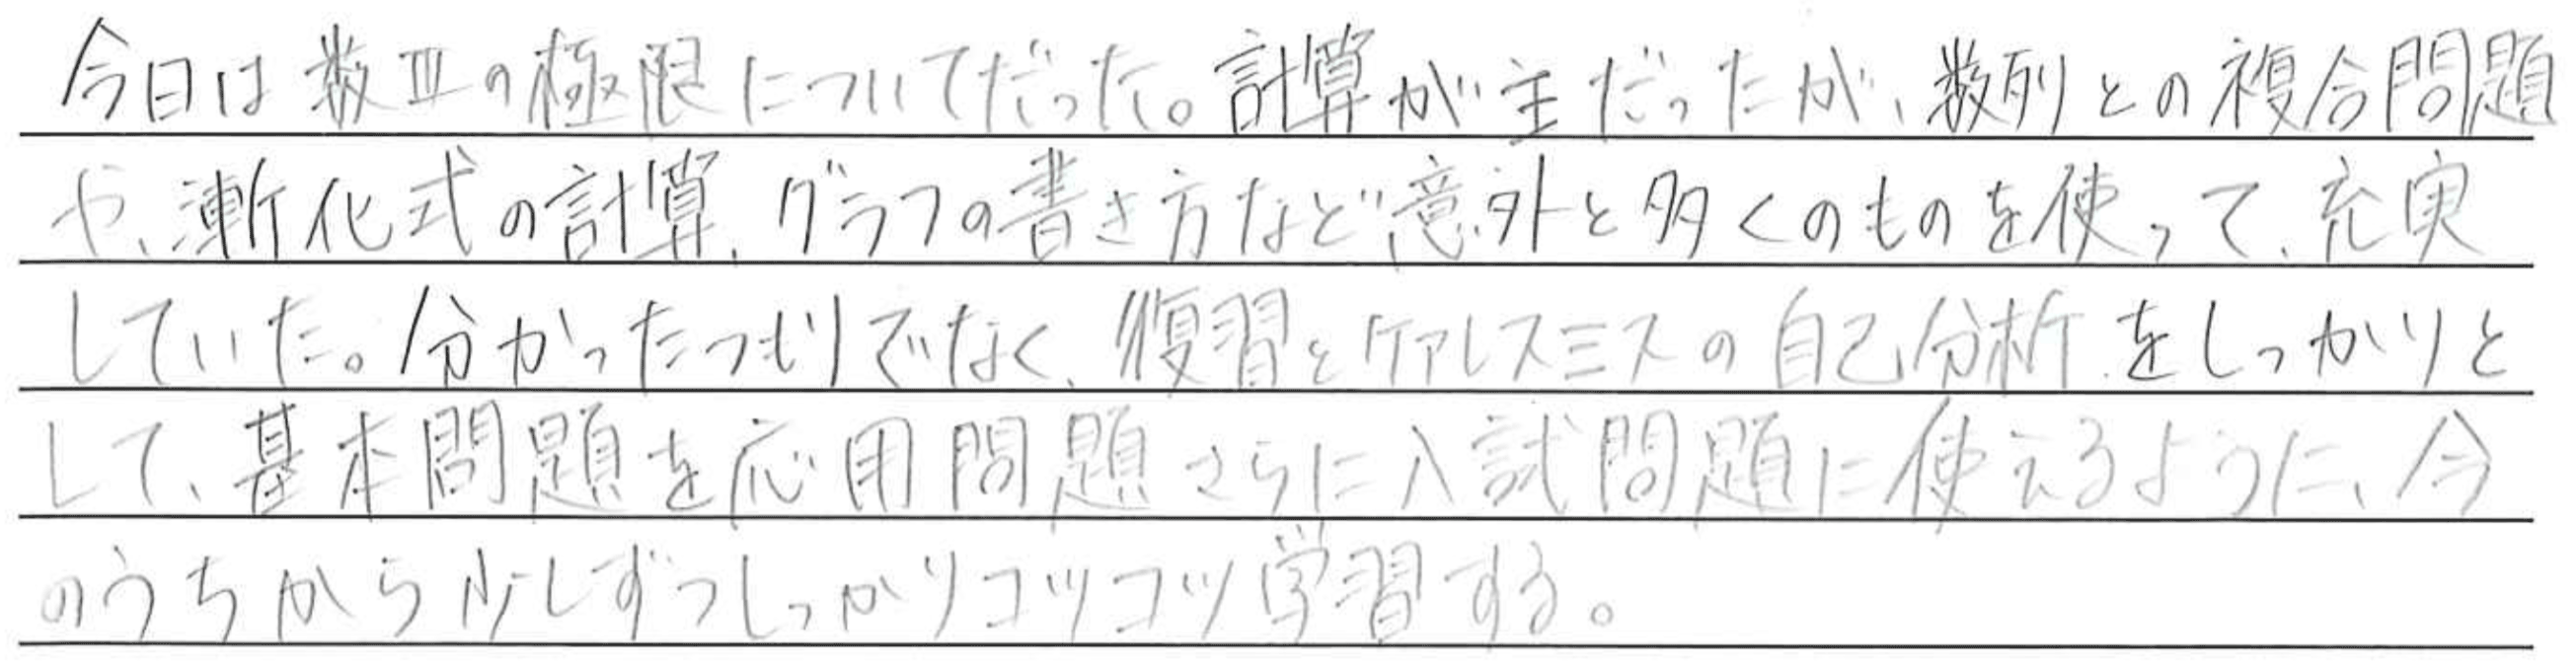 今日は数Ⅲの極限についてだった。計算が主だったが、数列との複合問題
や、漸化式の計算、グラフの書き方など意外と多くのものを使って、充実
していた。分かったつもりでなく、復習とケアレスミスの自己分析をしっかりと
して、基本問題を応用問題さらに入試問題に使えるように、今
のうちから少しずつしっかりコツコツ学習する。